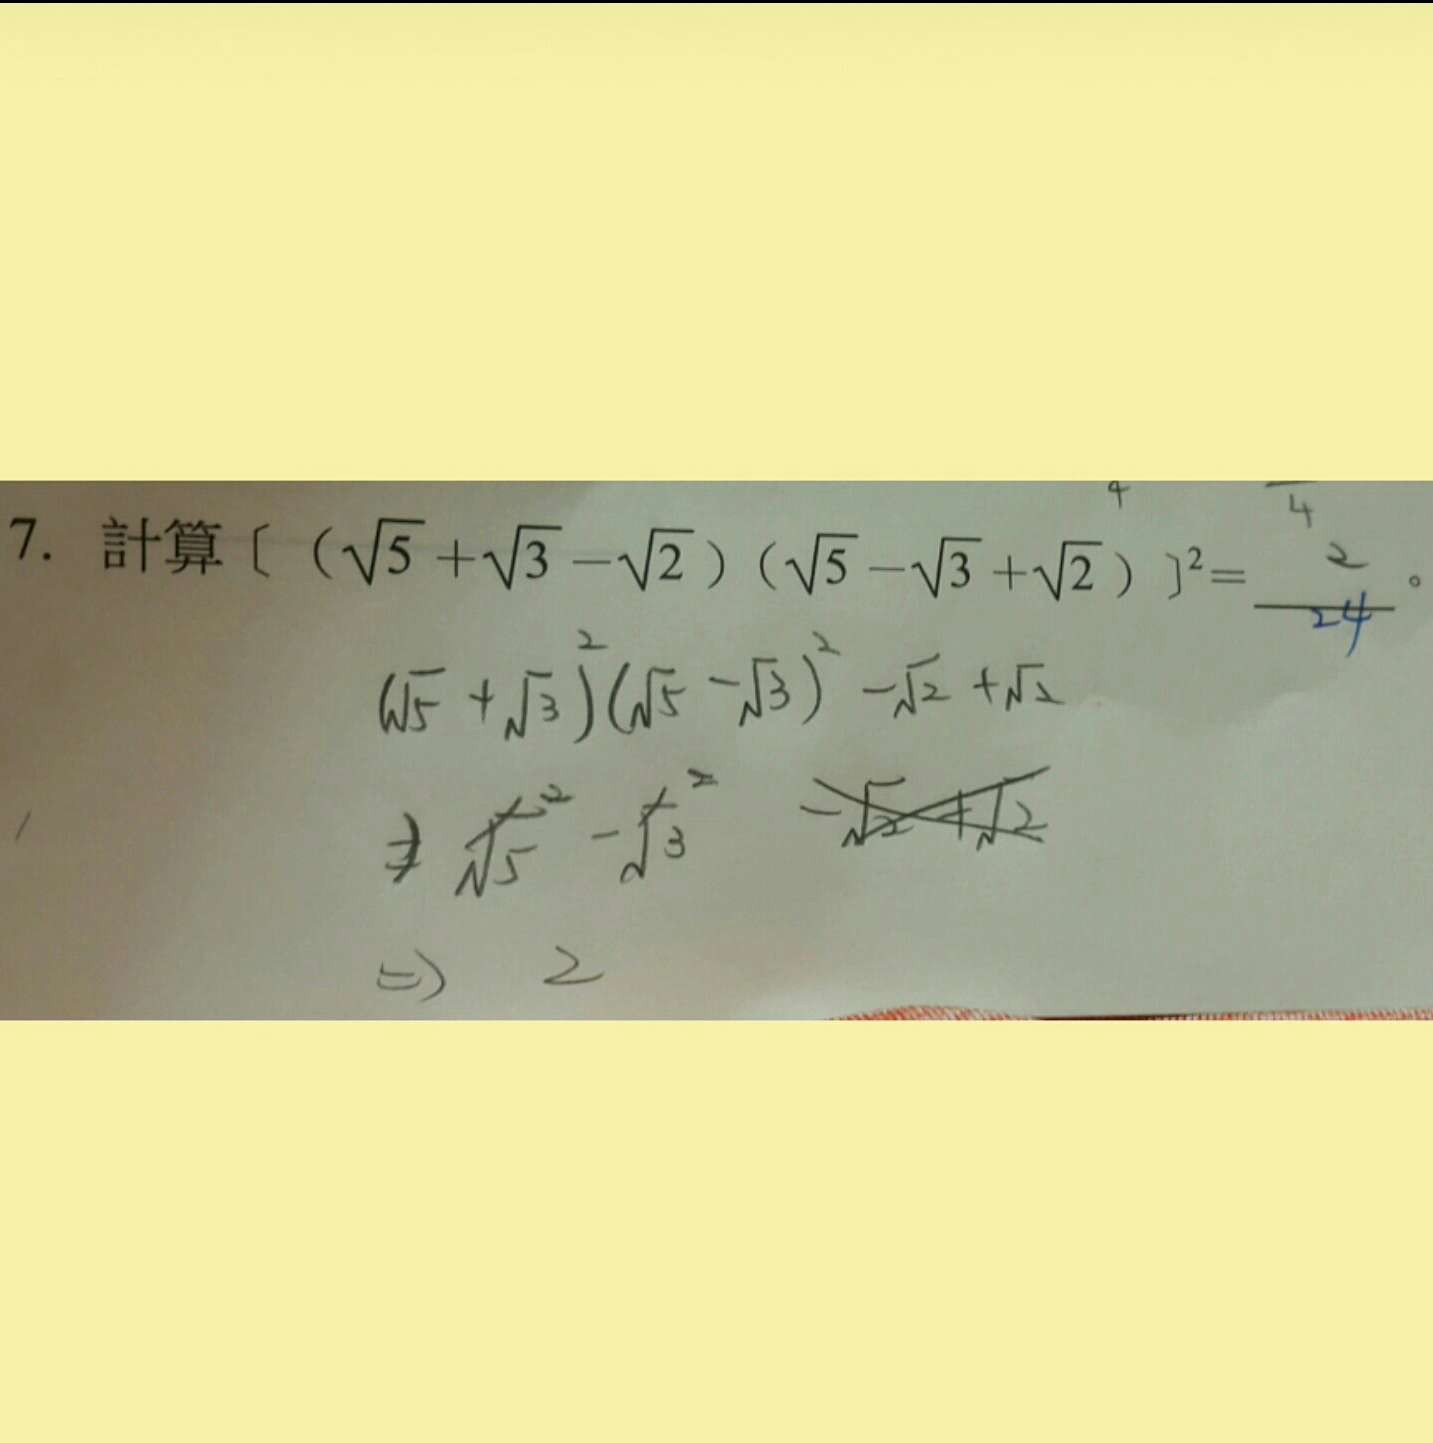 4
4
7. 計算〔（√5＋√3－√2）（√5－√3＋√2）〕²＝ 2 。
24
(√5 + √3)²(√5 - √3)² - √2 + √2
⇒ √5² - √3² - √2 + √2
=> 2